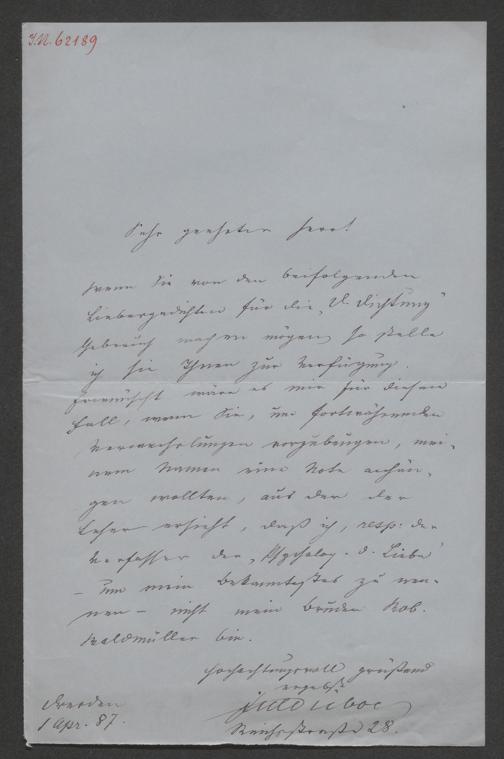 J.N. 62189
Sehr geehrter Herr!
Wenn Sie von den beifolgenden
Liebesgedichten für die „D. Dichtung"
Gebrauch machen mögen, so stelle
ich sie Ihnen zur Verfügung.
Erwünscht wäre es mir für diesen
Fall, wenn Sie, um fortwährenden
Verwechslungen vorzubeugen, mei-
nem Namen eine Note anhän-
gen wollten, aus der der
Leser ersieht, daß ich, resp: der
Verfasser der „Psycholog. d. Liebe"
– um mein Bekanntestes zu nen-
nen – nicht mein Bruder Rob.
Waldmüller bin.
Hochachtungsvoll grüßend
ergebenst
Duboc
Dresden
1 Apr. 87.
Reichsstraße 28.